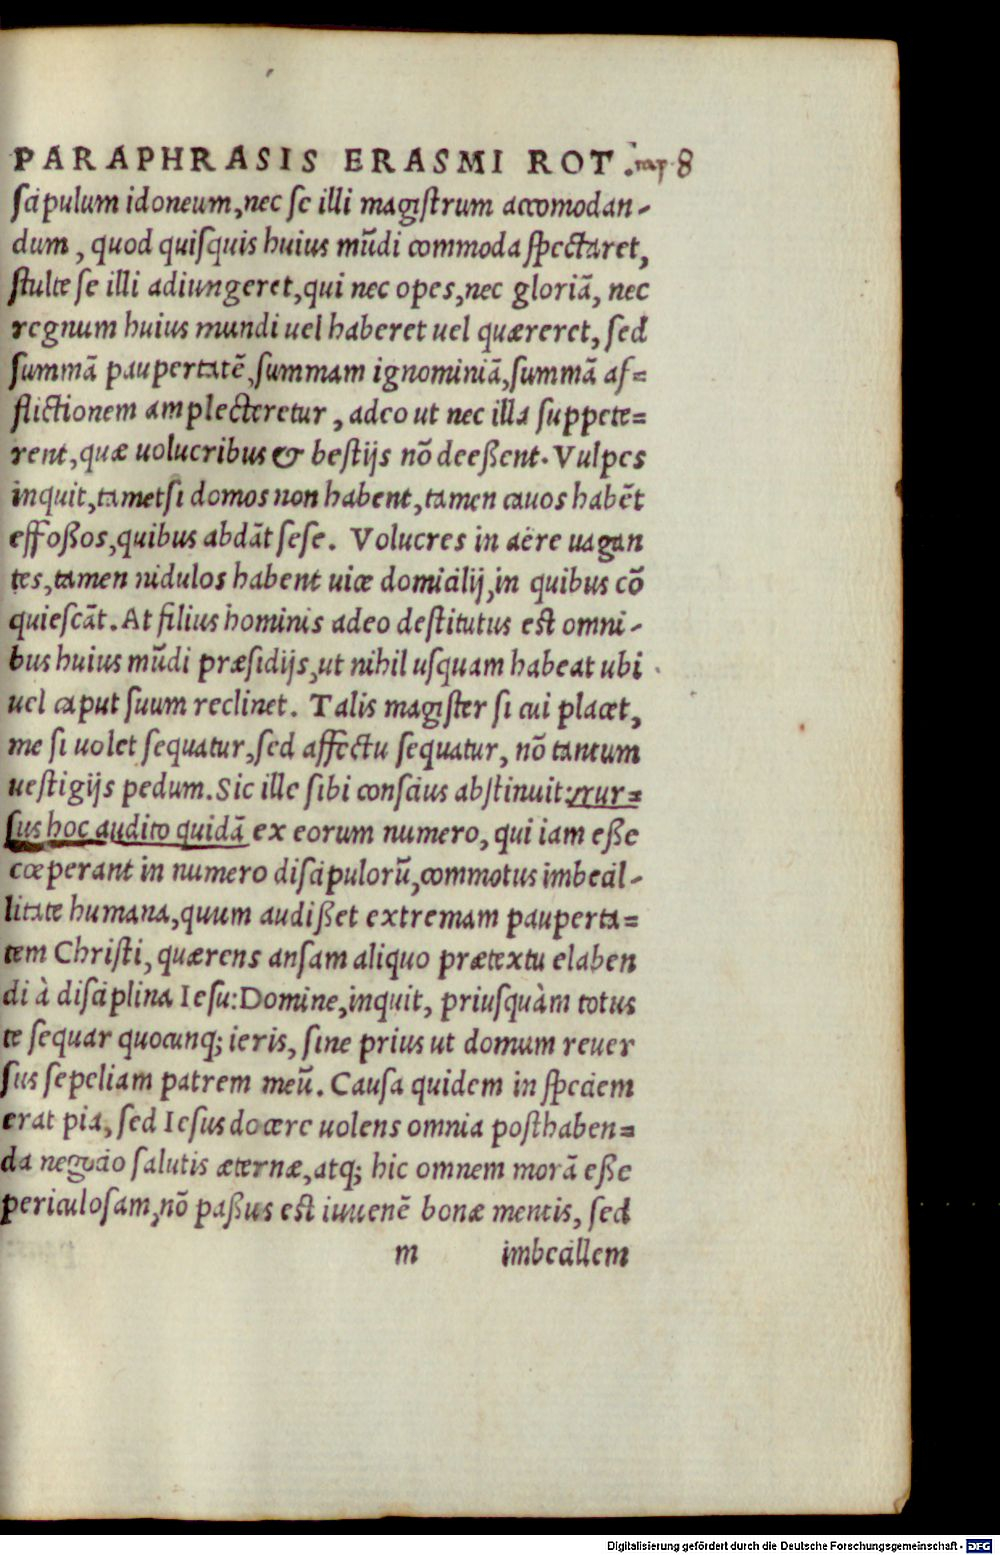 PARAPHRASIS ERASMI ROT. cap 8
ſcipulum idoneum, nec ſe illi magiſtrum accomodan-
dum, quod quiſquis huius mũdi commoda ſpectaret,
ſtulte ſe illi adiungeret, qui nec opes, nec gloriã, nec
regnum huius mundi uel haberet uel quæreret, ſed
ſummã paupertatẽ, ſummam ignominiã, ſummã af=
flictionem amplecteretur, adeo ut nec illa ſuppete=
rent, quæ uolucribus & beſtijs nõ deeßent. Vulpes
inquit, tametſi domos non habent, tamen cauos habẽt
effoßos, quibus abdãt ſeſe. Volucres in aëre uagan
tes, tamen nidulos habent uice domicilij, in quibus cõ
quieſcãt. At filius hominis adeo deſtitutus eſt omni-
bus huius mũdi præſidijs, ut nihil uſquam habeat ubi
uel caput ſuum reclinet. Talis magiſter ſi cui placet,
me ſi uolet ſequatur, ſed affectu ſequatur, nõ tantum
ueſtigijs pedum. Sic ille ſibi conſcius abſtinuit: rur=
ſus hoc audito quidã ex eorum numero, qui iam eße
cœperant in numero diſcipulorũ, commotus imbecil-
litate humana, quum audißet extremam pauperta=
tem Chriſti, quærens anſam aliquo prætextu elaben
di à diſciplina Ieſu: Domine, inquit, priuſquàm totus
te ſequar quocunq; ieris, ſine prius ut domum reuer
ſus ſepeliam patrem meũ. Cauſa quidem in ſpeciem
erat pia, ſed Ieſus docere uolens omnia poſthaben=
da negocio ſalutis æternæ, atq; hic omnem morã eße
periculoſam, nõ paßus eſt iuuenẽ bonæ mentis, ſed
m imbecillem
Digitalisierung gefördert durch die Deutsche Forschungsgemeinschaft - DFG